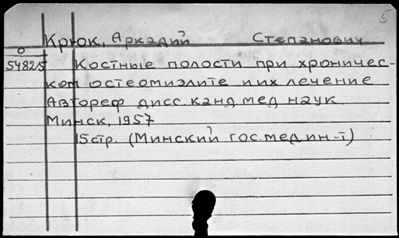 5
Крюк, Аркадий Степанович
О
54825 Костные полости при хроничес-
ком остеомиэлите и их лечение
Автореф дисс. канд. мед наук.
Минск, 1957
15 стр. (Минский гос. мед ин-т)